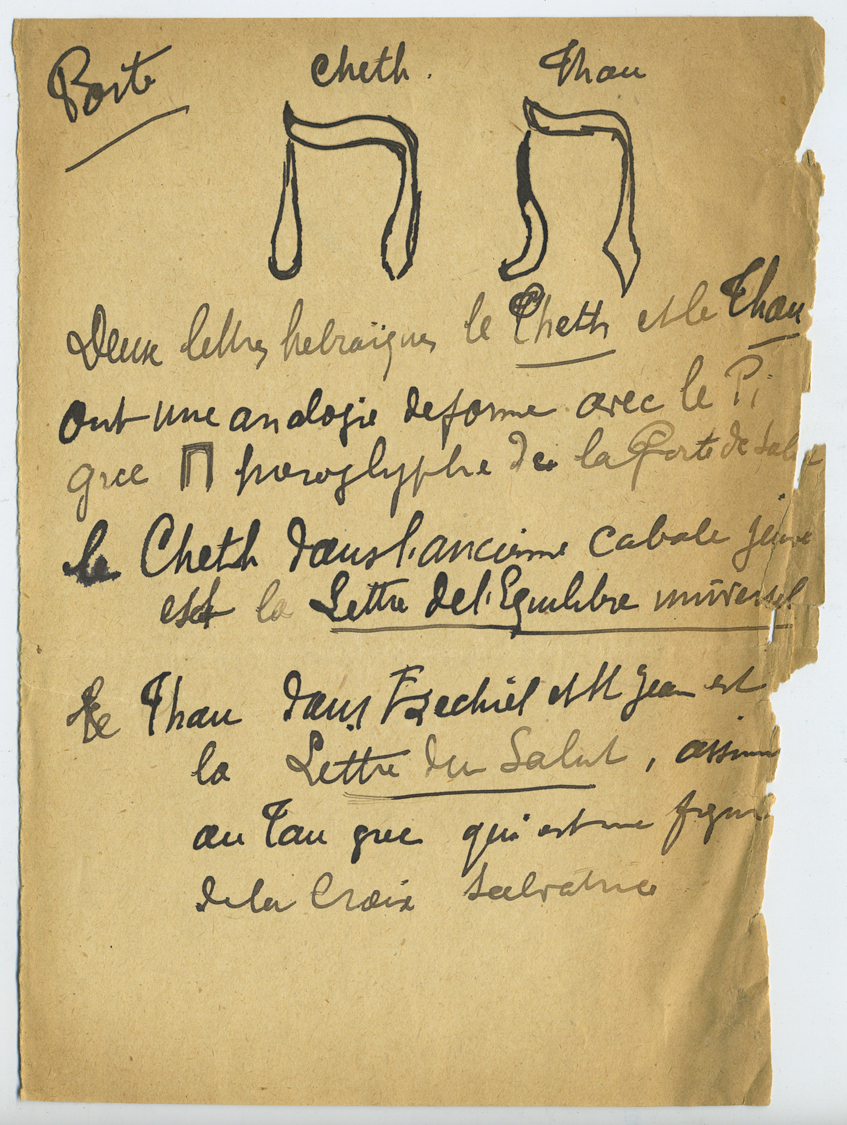 Porte
Cheth. Thau
ח ת
Deux lettres hebraïques le Cheth et le Thau
ont une analogie de forme avec le Pi
grec Π hieroglyphe de la Porte de Salut
le Cheth dans l'ancienne Cabale juive
est la Lettre de l'Equilibre universel
Le Thau dans Ezechiel et St Jean est
la Lettre du Salut,
au Tau grec qui est une figure
de la Croix Salvatrice